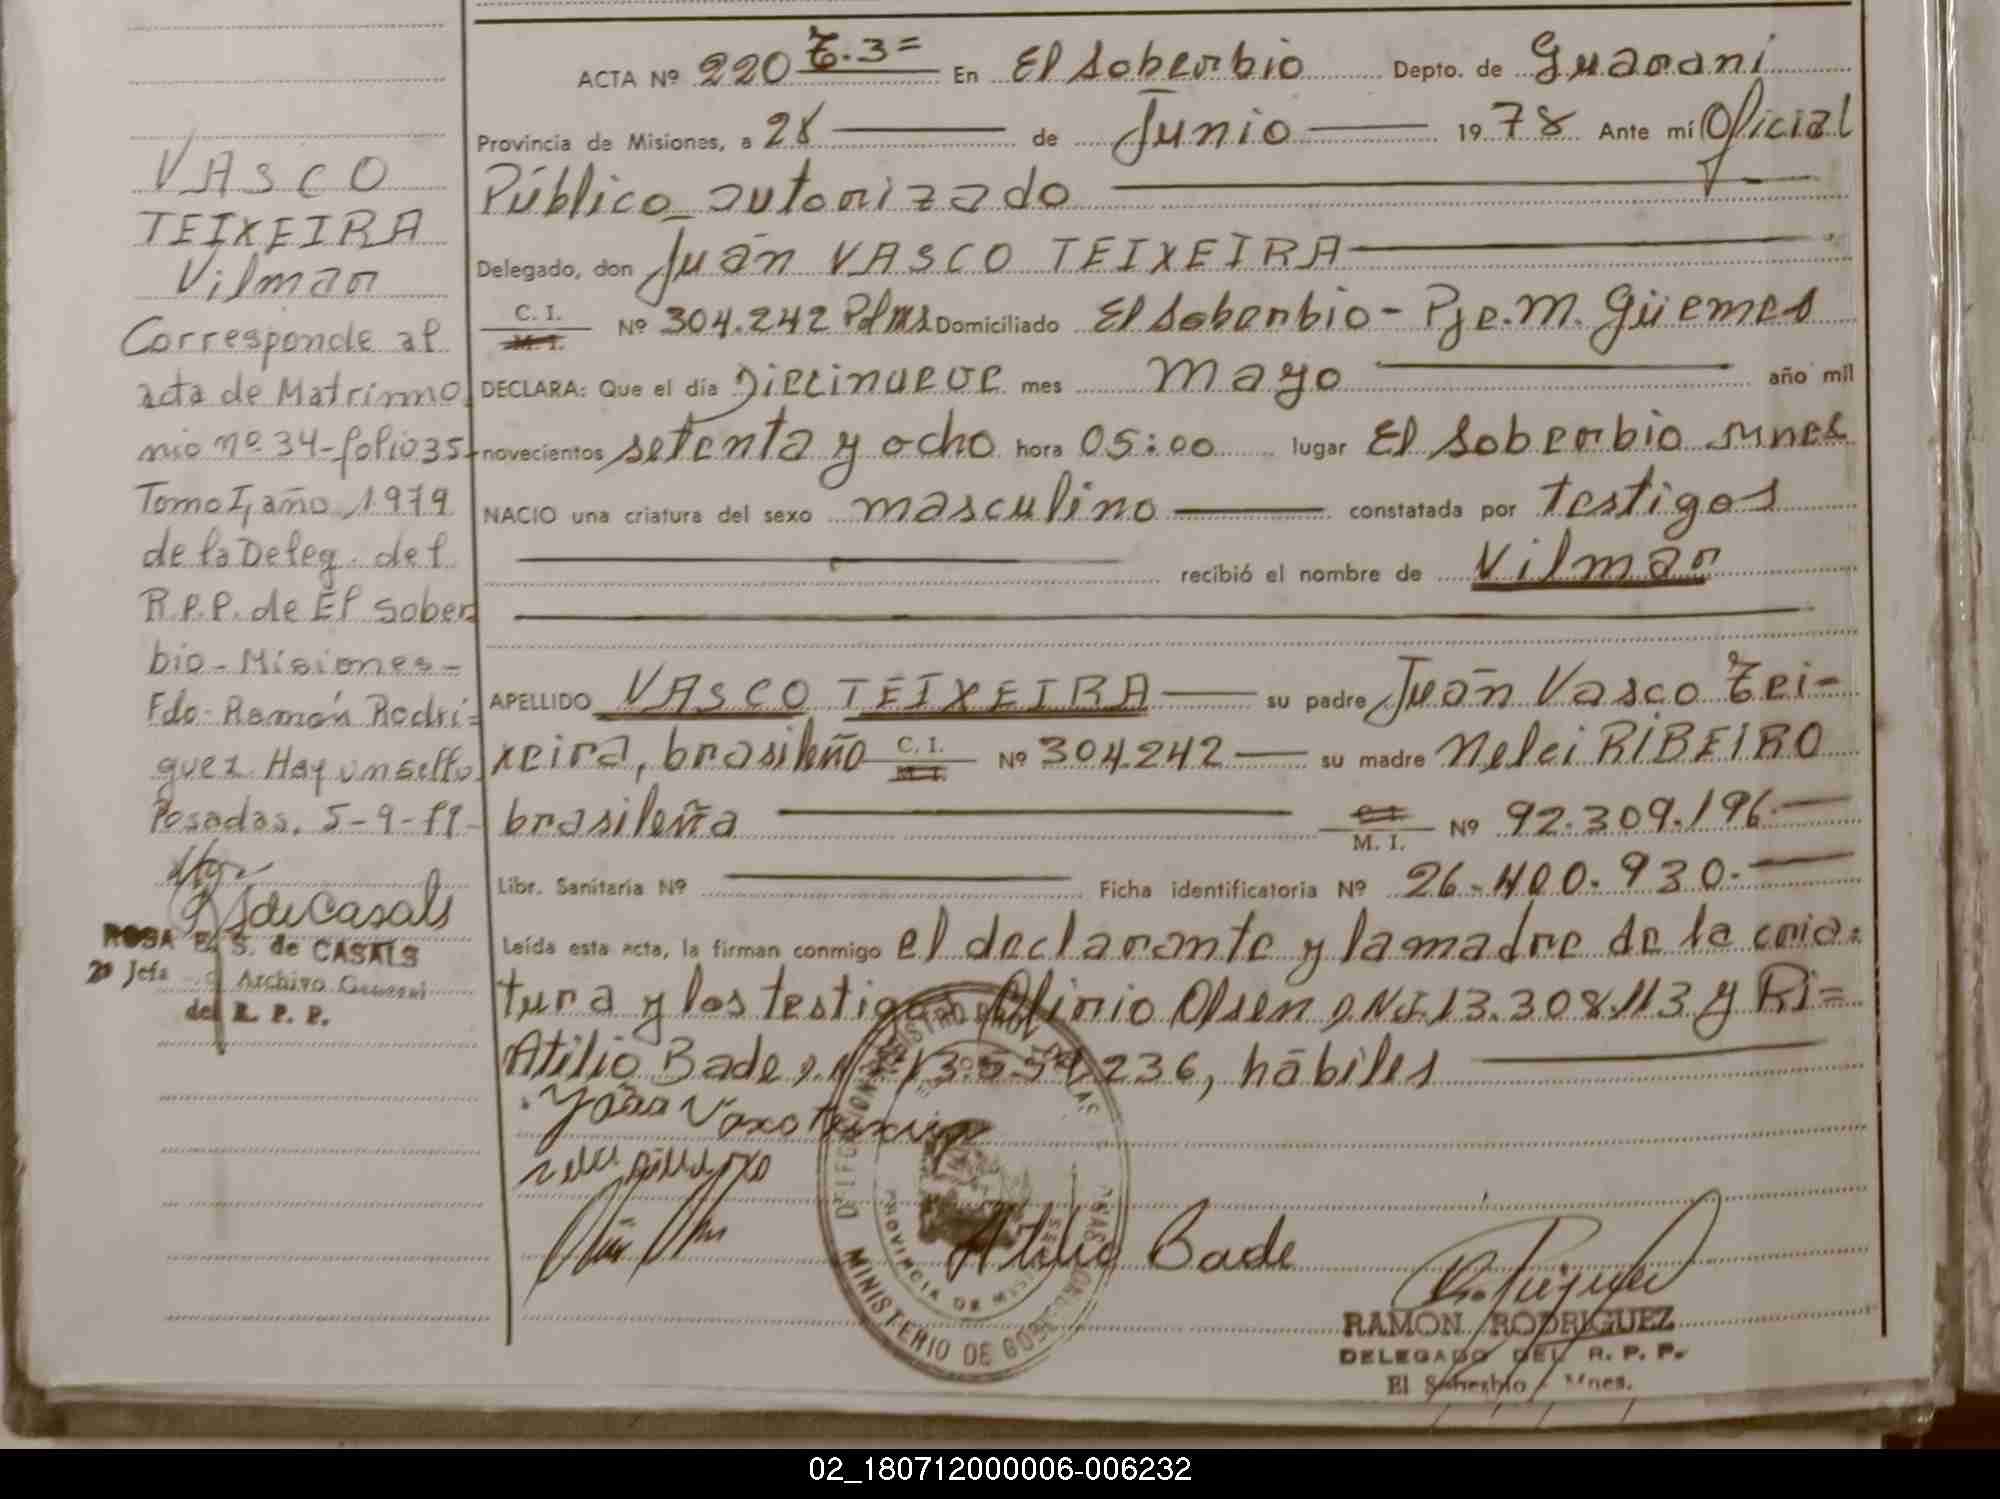 ACTA Nº 220 T.3= En El Soberbio Depto. de Guarani
Provincia de Misiones, a 28 de Junio 1978 Ante mí Oficial
Público autorizado
Delegado, don Juan VASCO TEIXEIRA
C. I. M. I. Nº 304.242 Pol Ms Domiciliado El Soberbio - Pje. M. Güemes
DECLARA: Que el día Diecinueve mes mayo año mil
novecientos setenta y ocho hora 05:00 lugar El Soberbio Mnes
NACIO una criatura del sexo masculino constatada por testigos
recibió el nombre de Vilmar
APELLIDO VASCO TEIXEIRA su padre Juan Vasco Tei-
xeira, brasileño C. I. M. I. Nº 304.242 su madre Nelci RIBEIRO
brasileña C. I. M. I. Nº 92.309.196.
Libr. Sanitaria Nº Ficha identificatoria Nº 26.400.930.
Leída esta acta, la firman conmigo el declarante y la madre de la cria=
tura y los testigos Olinio Olsen DNI 13.308.113 y Ri=
Atilio Bade, 236, hábiles
João Vasco Teixeira
Atilio Bade
DELEGACION REGISTRO
PROVINCIA DE MISIONES
MINISTERIO DE GOBIERNO
RAMON RODRIGUEZ
DELEGADO DEL R. P. P.
El Soberbio - Mnes.
VASCO
TEIXEIRA
Vilmar
Corresponde al
acta de Matrimo
nio nº 34-folio 35-
Tomo I, año 1979
de la Deleg. del
R.P.P. de El Sober
bio - Misiones -
Fdo. Ramón Rodri=
guez Hay un sello
Posadas, 5-9-
de Casals
ROSA E. S. de CASALS
2º Jefa Archivo General
del R. P. P.
02_180712000006-006232